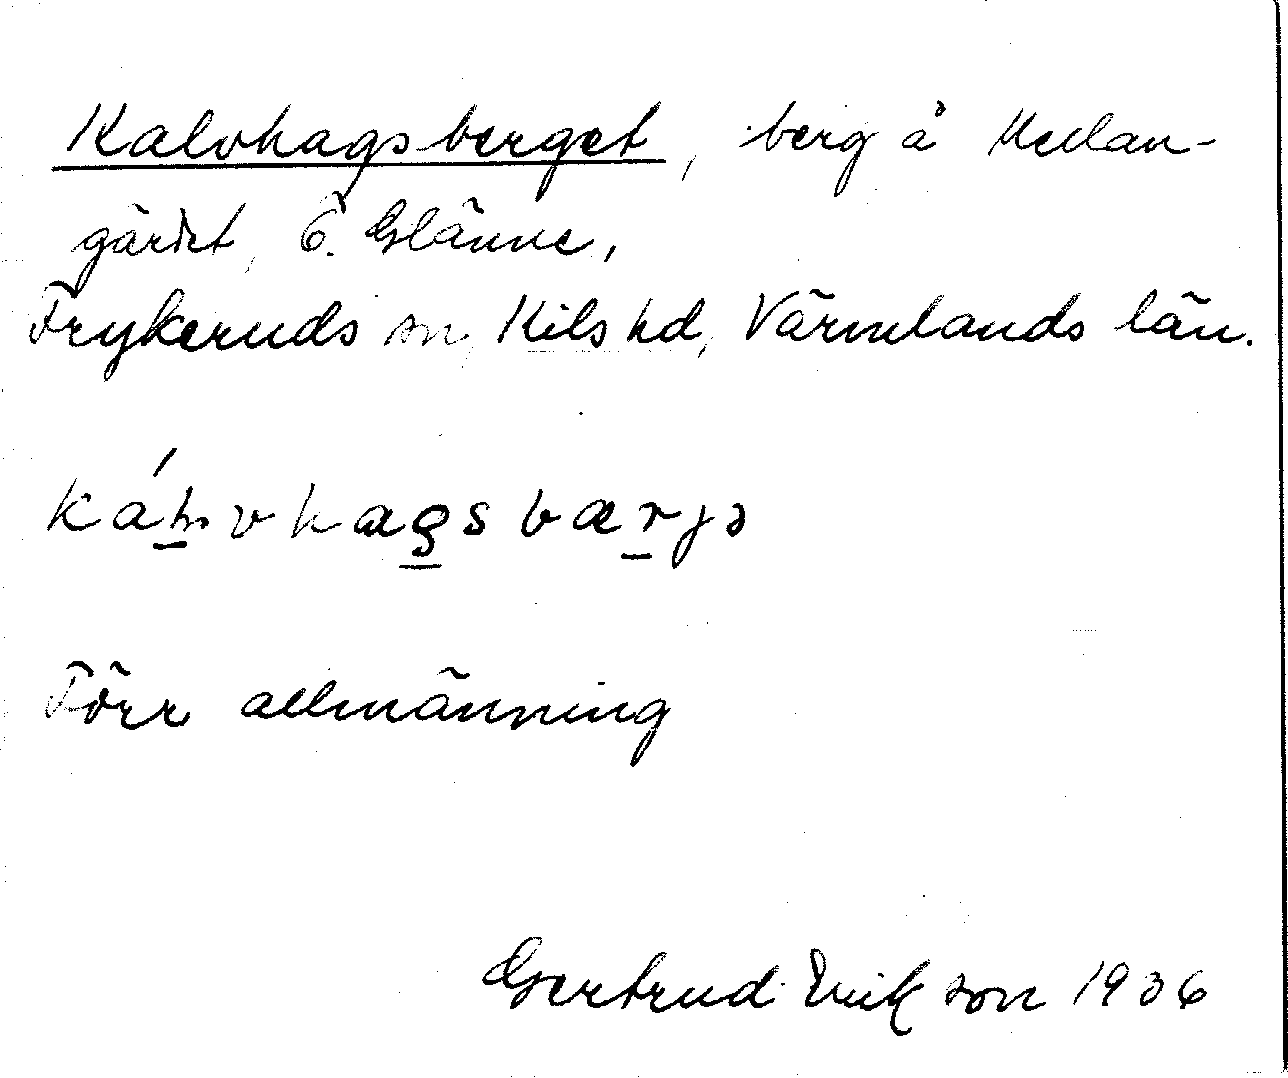 Kalvhagsberget, berg å Mellan-
gärdet, Ö. Glänne,
Frykeruds sn, Kils hd, Värmlands län.
Förr allmänning
Gertrud Erikson 1936